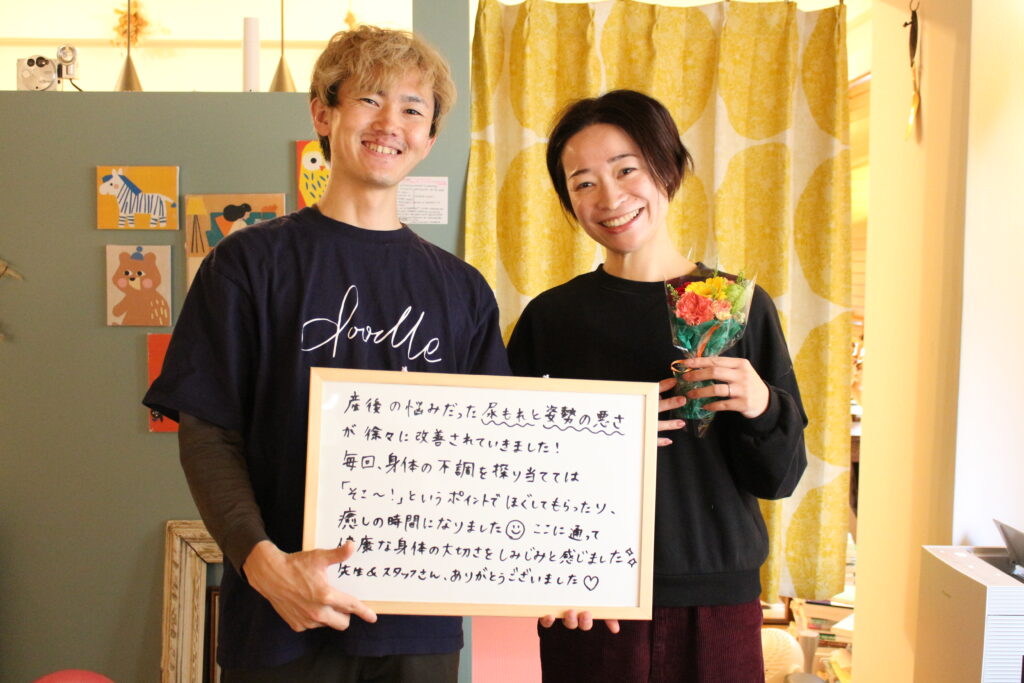 doodle
産後の悩みだった尿もれと姿勢の悪さ
が徐々に改善されていきました!
毎回、身体の不調を探り当てては
「そこ〜!」というポイントでほぐしてもらったり、
癒しの時間になりました☺ ここに通って
健康な身体の大切さをしみじみと感じました✨
先生&スタッフさん、ありがとうございました♡